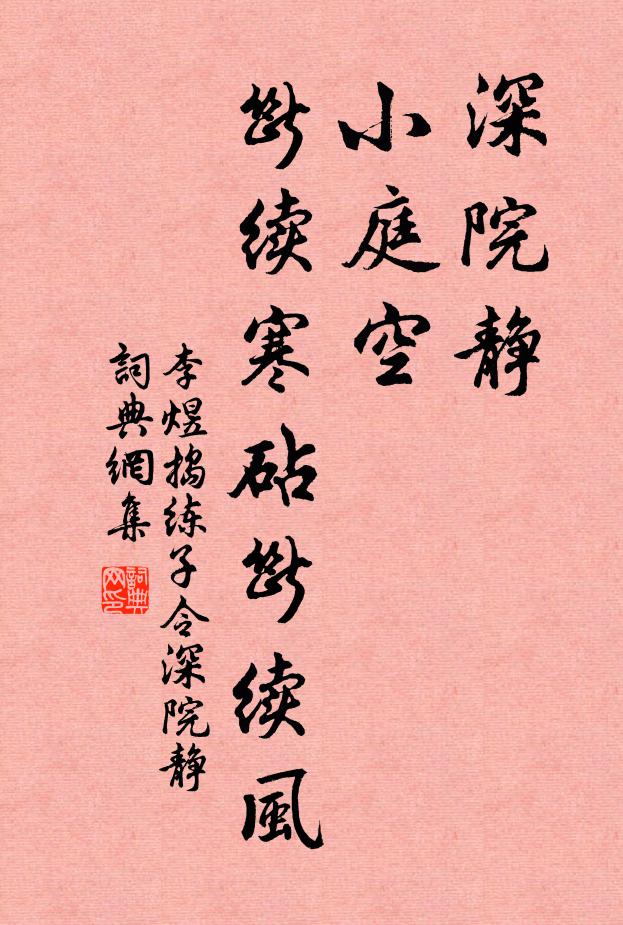 深院静
小庭空
断续寒砧断续風
李煜捣练子令深院静
詞典網集
詞典网印